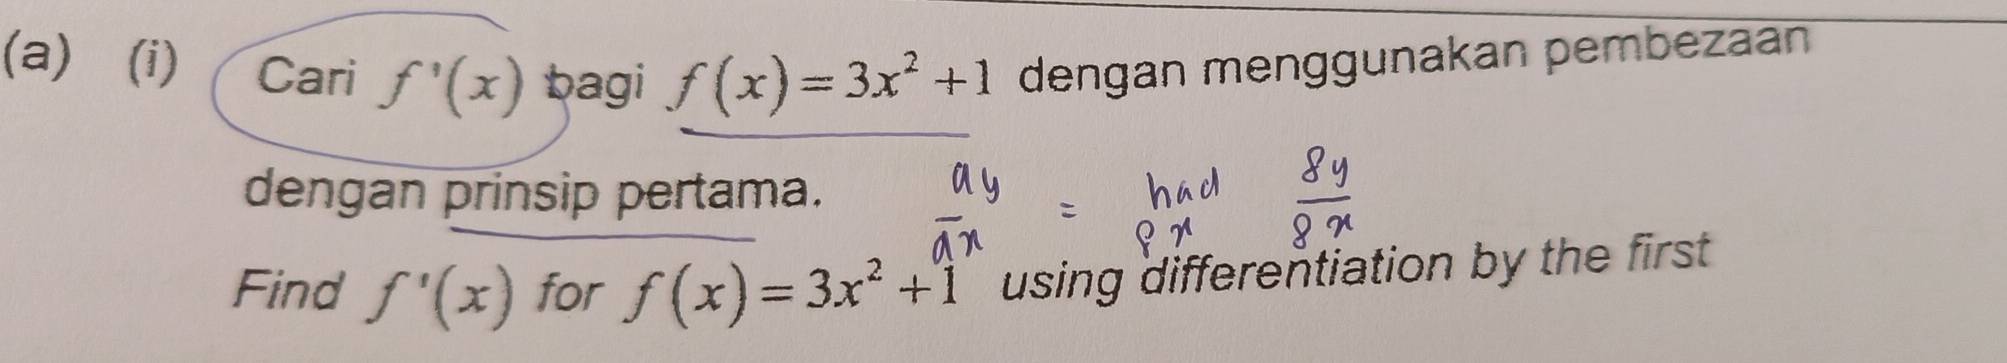 (a) (i) Cari f'(x) bagi f(x) = 3x² + 1 dengan menggunakan pembezaan
dengan prinsip pertama.
dy/dx = had δx δy/δx
Find f'(x) for f(x) = 3x² + 1 using differentiation by the first